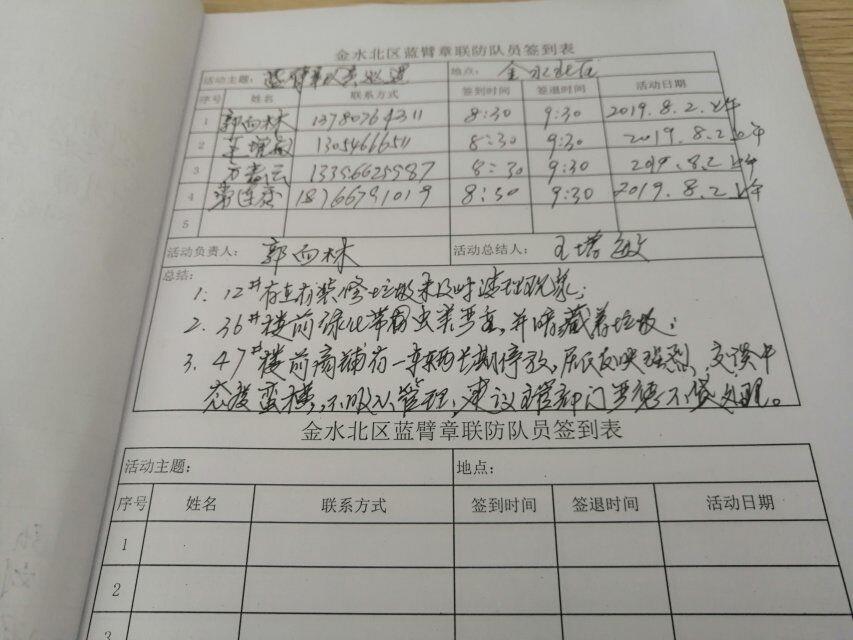 金水北区蓝臂章联防队员签到表
活动主题: 蓝臂章队员巡逻 地点: 金水北区
序号 姓名 联系方式 签到时间 签退时间 活动日期
1 郭向林 13780764311 8:30 9:30 2019.8.2.上午
2 王增敏 1305466511 8:30 9:30 2019.8.2上午
3 13356625987 8:30 9:30 2019.8.2上午
4 常连 18766791019 8:30 9:30 2019.8.2上午
5
活动负责人: 郭向林 活动总结人: 王增敏
总结:
1. 12#存在有装修垃圾未及时清理现象;
2. 36#楼前绿化带因虫害严重,并暗藏着垃圾;
3. 47#楼前商铺有一车辆长期停放,居民反映强烈,交谈中
态度蛮横,不服从管理,建议主管部门严惩不贷处理。
金水北区蓝臂章联防队员签到表
活动主题: 地点:
序号 姓名 联系方式 签到时间 签退时间 活动日期
1
2
3